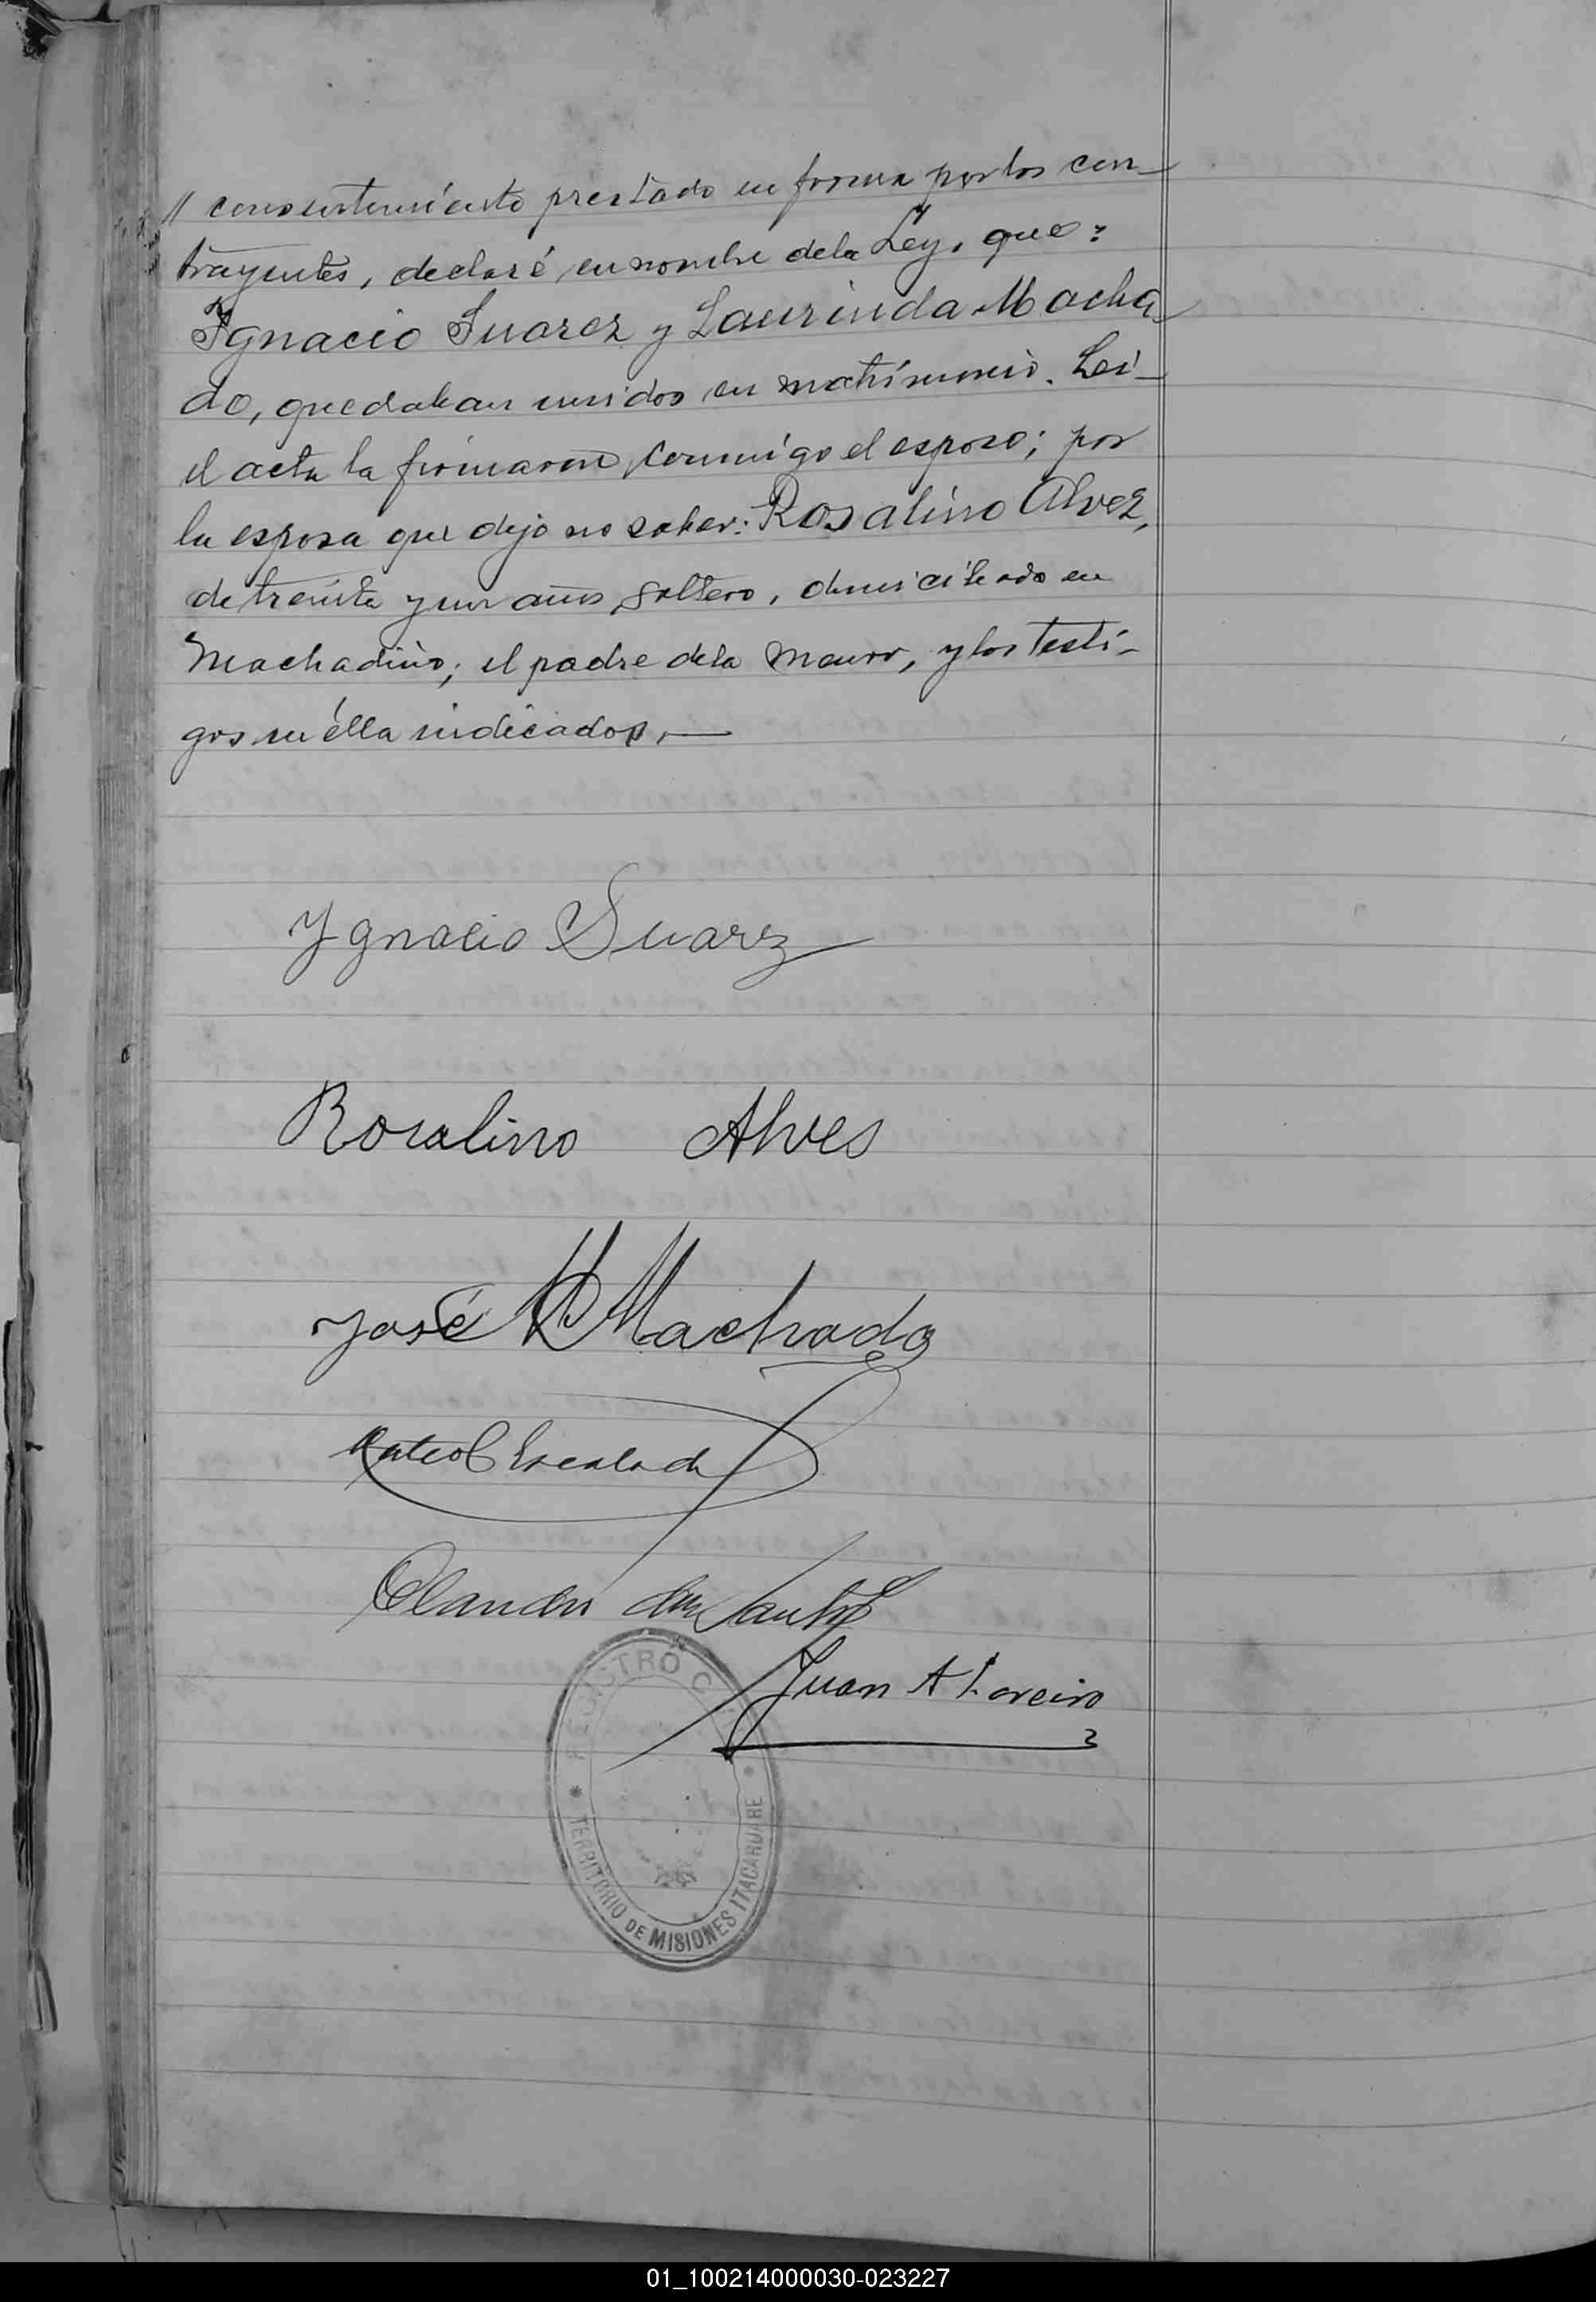 // consentimiento prestado en forma por los con-
trayentes, declaré en nombre de la Ley, que:
Ignacio Suarez y Laurinda Macha-
do, quedaban unidos en matrimonio. Lei-
el acta la firmaron conmigo el esposo; por
la esposa que dijo no saber: Rosalino Alvez,
de treinta y un años, soltero, domiciliado en
Machadiño; el padre de la menor, y los testi-
gos en élla indicados.—
Ygnacio Suarz
Rosalino Alves
José Machado
Mateo Escalada
dos Santos
Juan A Loreiro
REGISTRO C
TERRITORIO DE MISIONES ITACARUARE
01_100214000030-023227